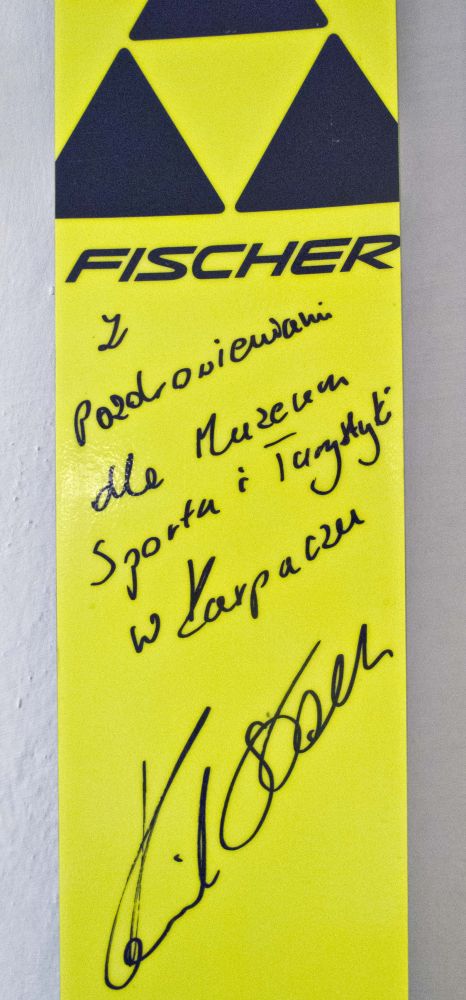 FISCHER
Z
Pozdrowieniami
dla Muzeum
Sportu i Turystyki
w Karpaczu
Kamil Stoch